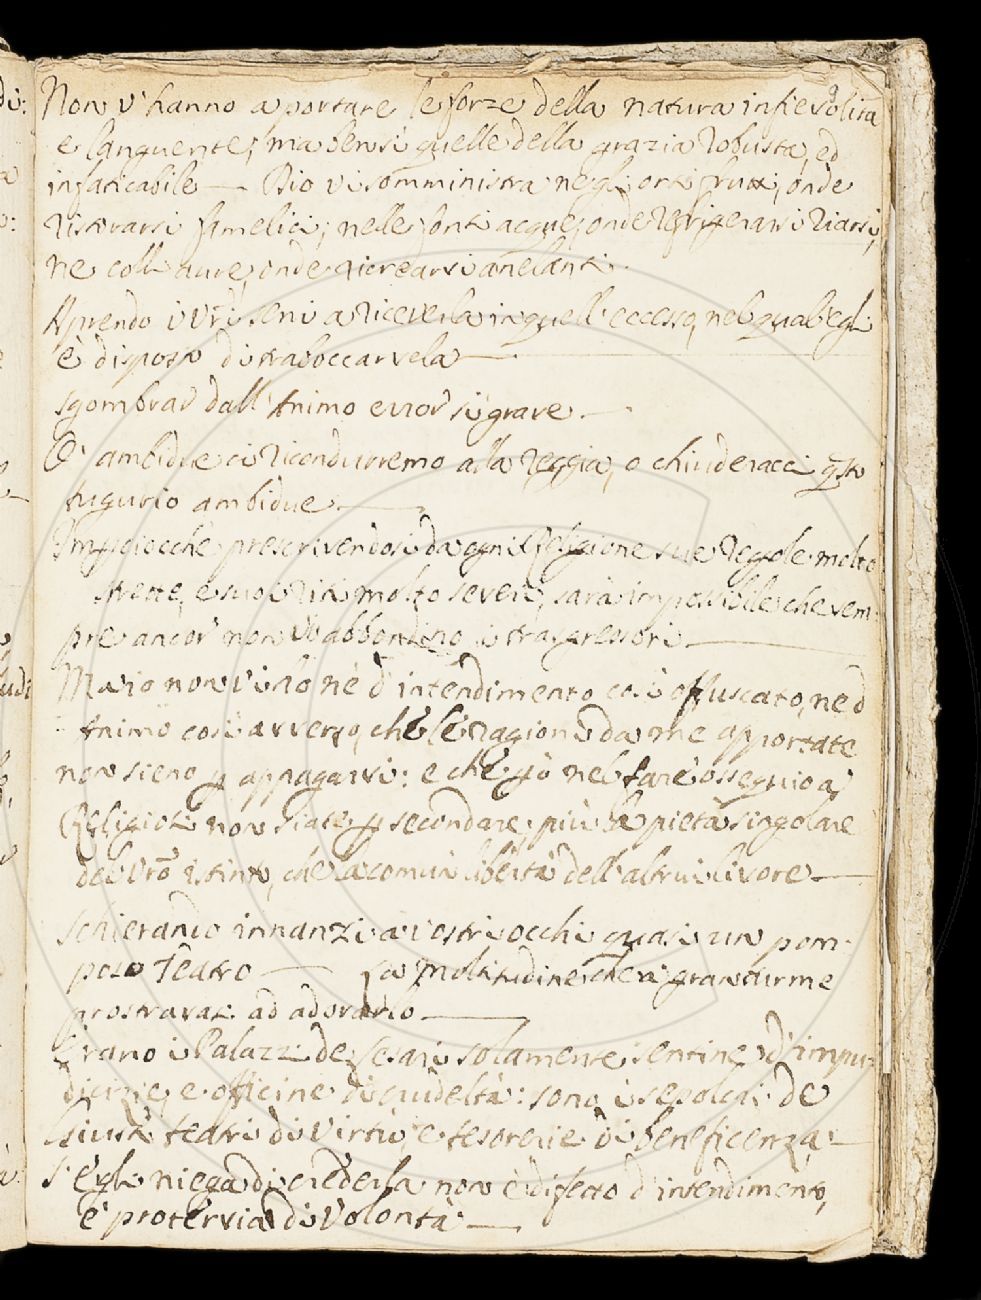 9
Non v'hanno a portare le forze della natura infievolita
e languente; ma bensì quelle della grazia robusta, ed
infaticabile — Dio vi somministra negli orti frutti, onde
ristorarsi famelici; nelle fonti acque, onde refrigerarsi riarsi;
ne colli aure, onde ricrearsi anelanti.
Aprendo i vri seni a riceverla in quell'eccesso, nel qual egli
è disposto di traboccarvela —
sgombrar dall'Animo error sì grave. —
O' ambidue ci ricondurremo alla reggia, o chiuderacci qsto
tugurio ambidue —
Impciocchè prescrivendosi da ogni Religione sue regole molto
strette, e suoi riti molto severi, sarà impossibile che sem
pre ancor non vi abbondino i trasgressori —
Ma io non vi ho nè d'intendimento così offuscato, nè d'
Animo così avverso, che le ragioni da me apportate
non sieno p appagarvi: e che più nel fare ossequio a
Religiosi non siate p secondare più la pietà singolare
del vro istinto, che la comun libertà dell'altrui livore —
schierando innanzi a vostri occhi quasi un pom-
poso Teatro — La moltitudine che a gran turme
prostravasi ad adorarlo —
Erano i Palazzi de Cesari solamente sentine d'impu-
dicizie, e officine di crudeltà: sono i sepolcri de
Giusti teatri di virtù, e tesorerie di beneficenza: —
S'egli niega di crederla non è difetto d'intendimento,
è protervia di volontà —
di:
a
o:
udi